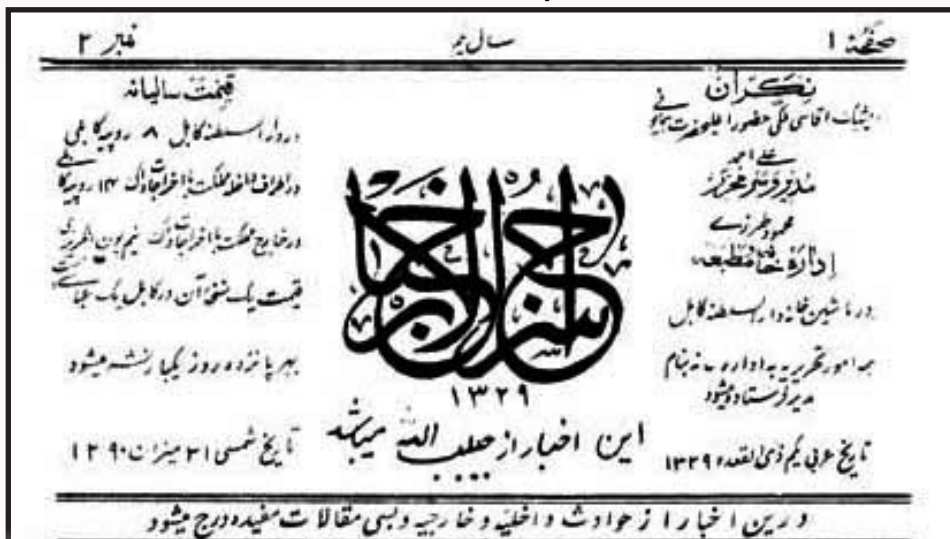 صفحهٔ ۱
سال یکم
نمبر ۲
نگران
ایشیک آقاسی ملکی حضور اعلیحضرت همایونی
علی احمد
مدیر و سر محرر
محمود طرزی
ادارهٔ خانه مطبعه
در ماشین خانه دارالسلطنه کابل
همه امور تحریریه به اداره به نام
مدیر فرستاده میشود
تاریخ عربی یکم ذی القعده ۱۳۲۹
سراج الاخبار
۱۳۲۹
این اخبار از حبیب الله میباشد
قیمت سالیانه
در دارالسلطنه کابل ۸ روپیه کابلی
در اطراف داخله مملکت با اخراجات داک ۱۲ روپیه کابلی
در خارج مملکت با اخراجات داک نیم پون انگریزی
قیمت یک نسخهٔ آن در کابل یک عباسی
بهر پانزده روز یکبار نشر میشود
تاریخ شمسی ۳۱ میزان ۱۲۹۰
درین اخبار از حوادث داخلیه و خارجیه و بسی مقالات مفیده درج میشود